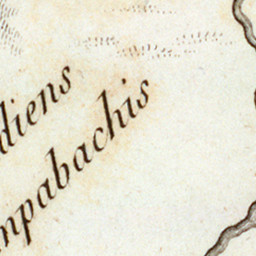 diens
mpabachis